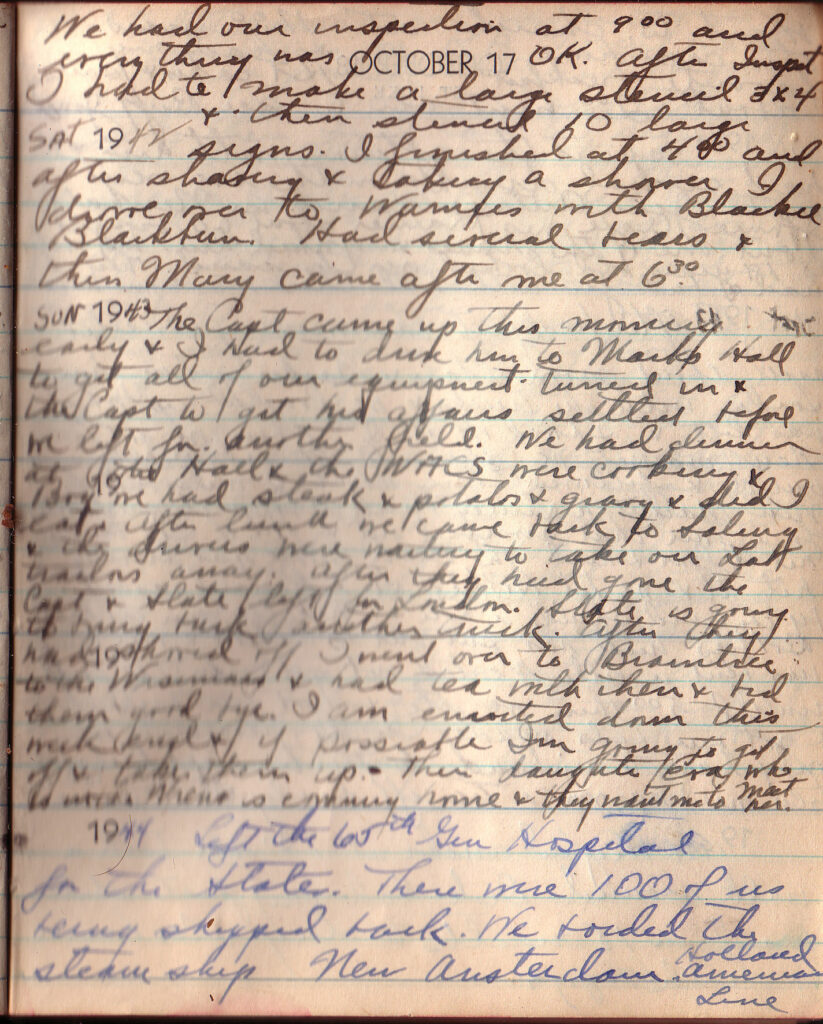 We had our inspection at 9⁰⁰ and
everything was OCTOBER 17 OK. After Inspect
I had to make a large stencil 3x4
& then stencil 60 large
SAT 1942 signs. I finished at 4⁰⁰ and
after shaving & taking a shower I
drove over to with Blackie
Blackburn. Had several beers &
then Mary came after me at 6³⁰
SUN 1943 The Capt came up this morning
early & I had to drive him to Marks Hall
to get all of our equipment turned in &
the Capt to get his affairs settled before
we left for another field. We had dinner
at the Hall & the WACS were cooking &
Boy we had steak & potatos & gravy & did I
eat. After lunch we came back to
& the drivers were waiting to take our Last
trailors away. After they had gone the
Capt & Slate left for London. Slate is going
to bring back another truck. After they
had shoved off I went over to Braintree
to the & had tea with them & bid
them good bye. I am envited down this
week end & if possiable Im going to get
off & take them up. Their daughter Eva who
is in the Wrens is comming home & they want me to meet
her.
1944 Left the 65th Gen Hospital
for the States. There were 100 of us
being shipped back. We borded the
steam ship New Amsterdam. Holland
American
Line
19
19